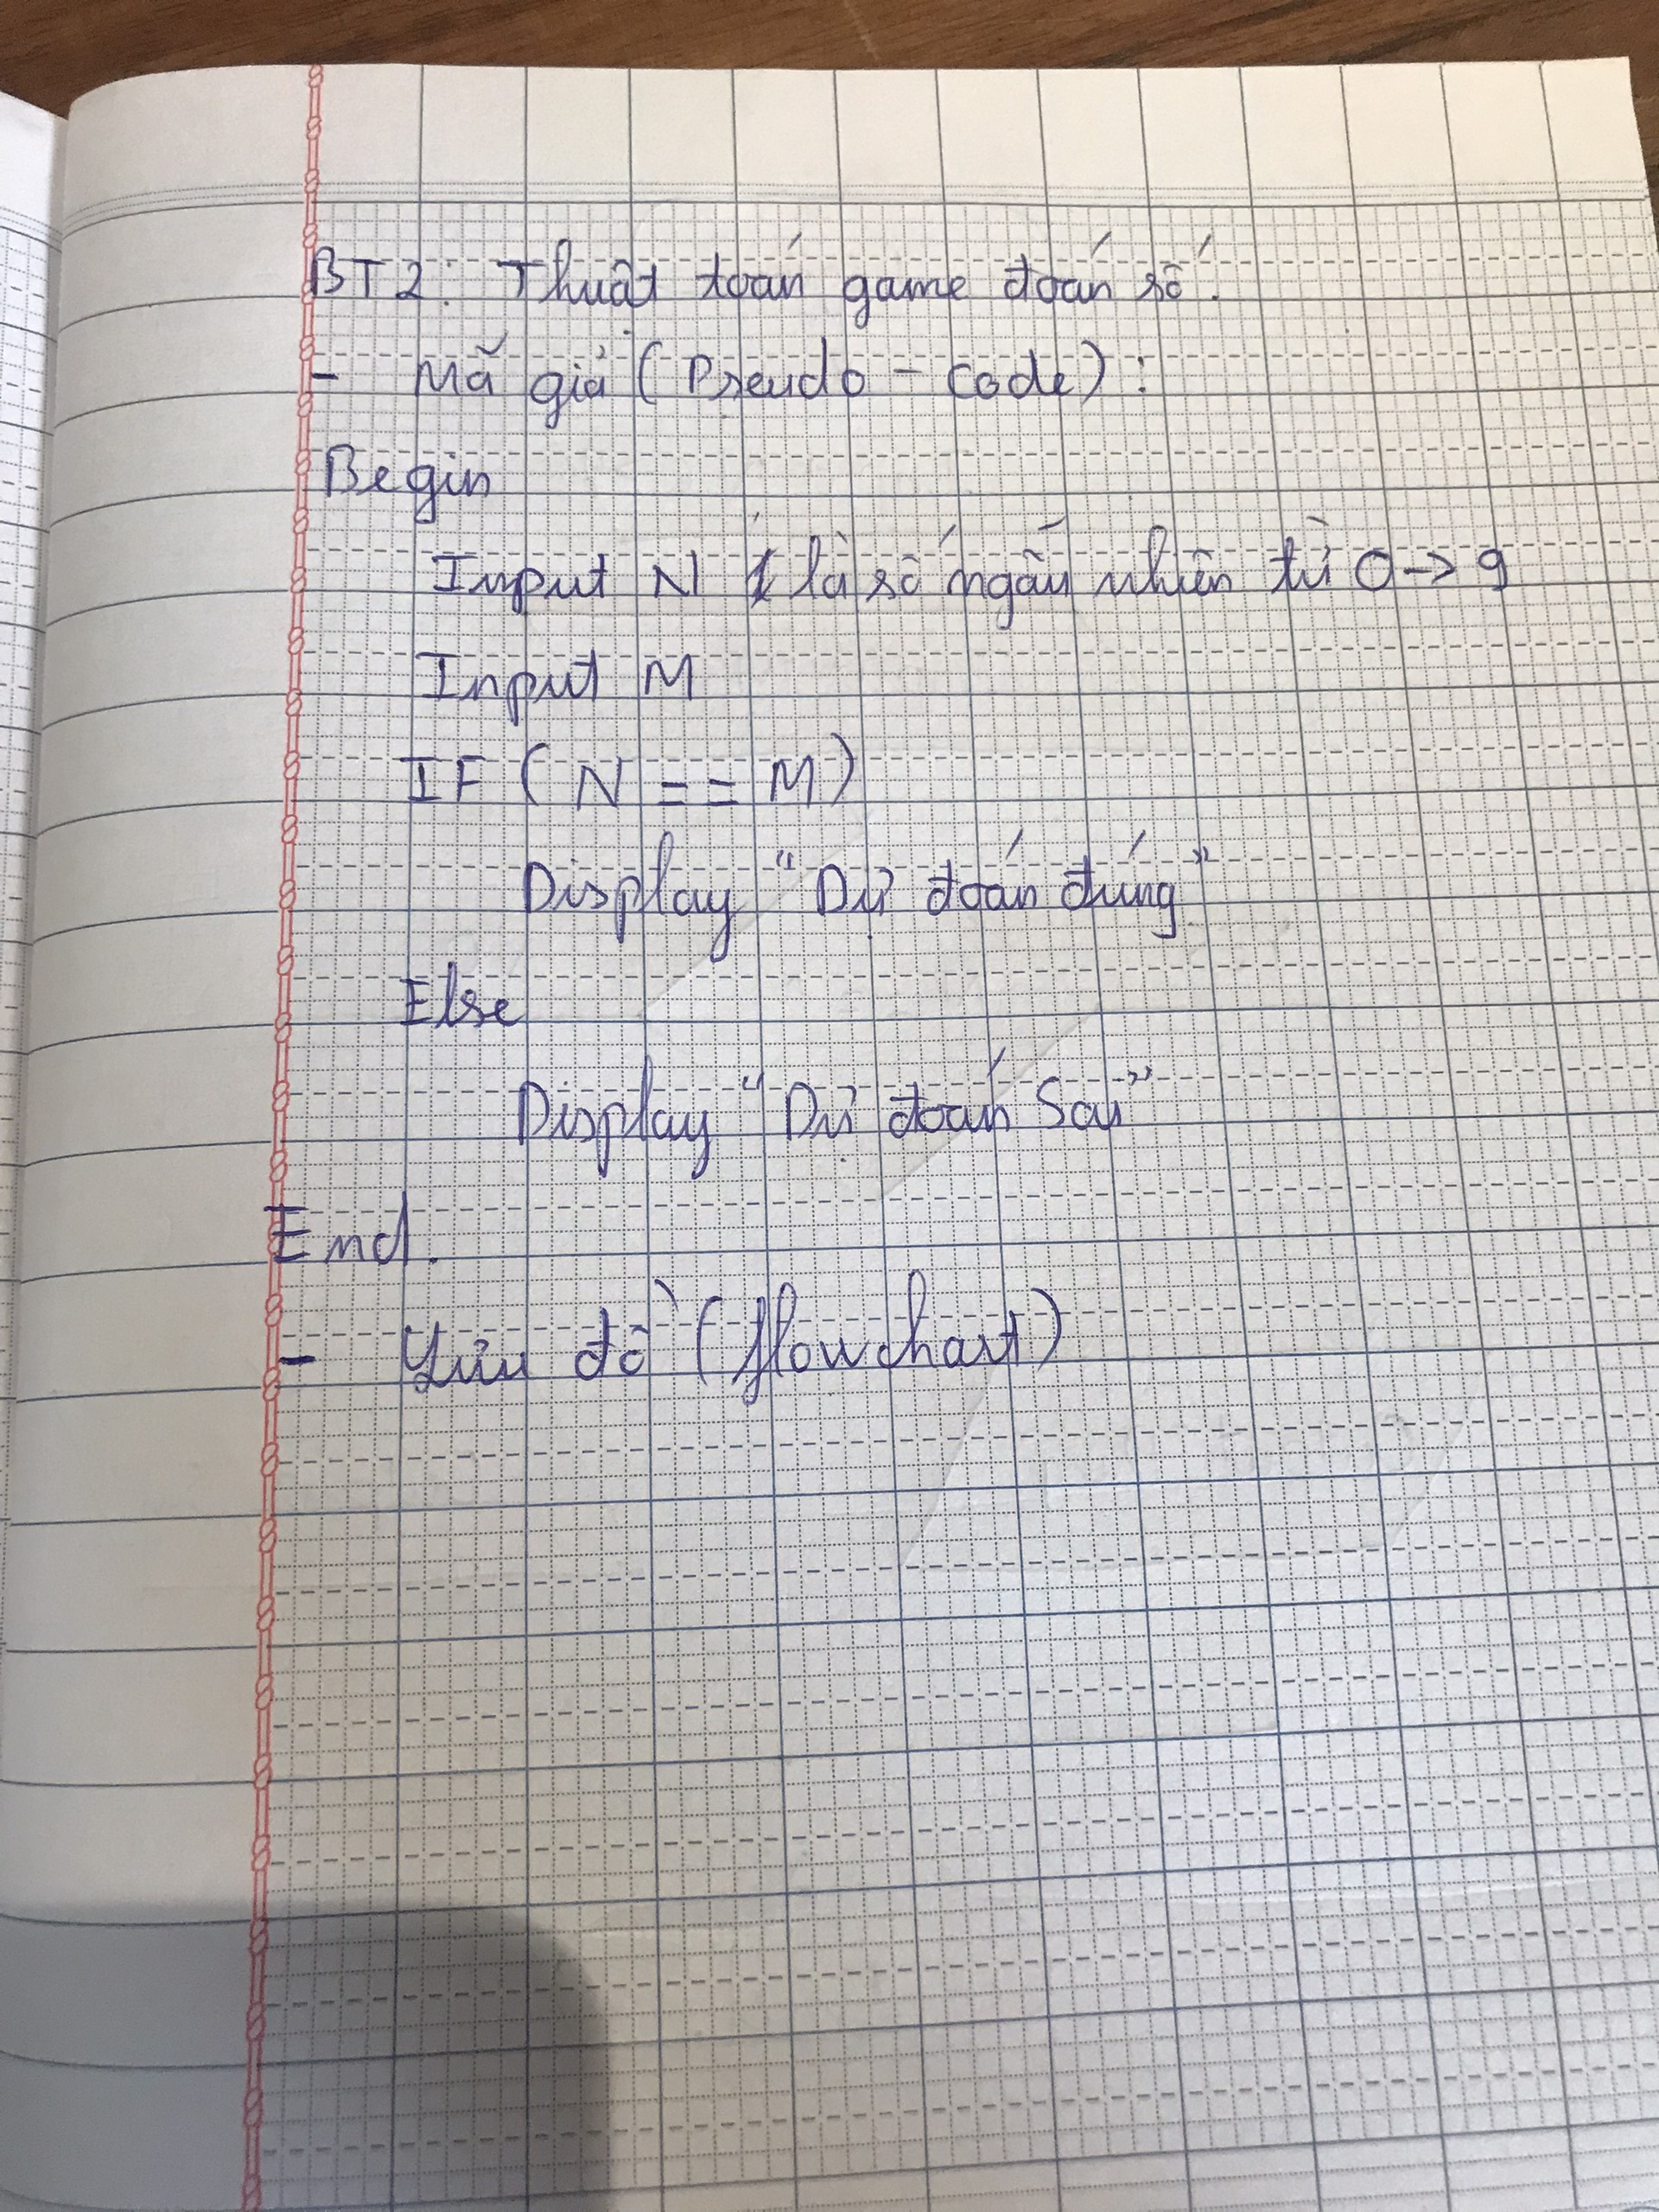 BT2: Thuật toán game đoán số.
- Mã giả (Pseudo - code):
Begin
Input N là số ngẫu nhiên từ 0 -> 9
Input M
IF (N == M)
Display "Dự đoán đúng"
Else
Display "Dự đoán Sai"
End.
- Lưu đồ (flowchart)